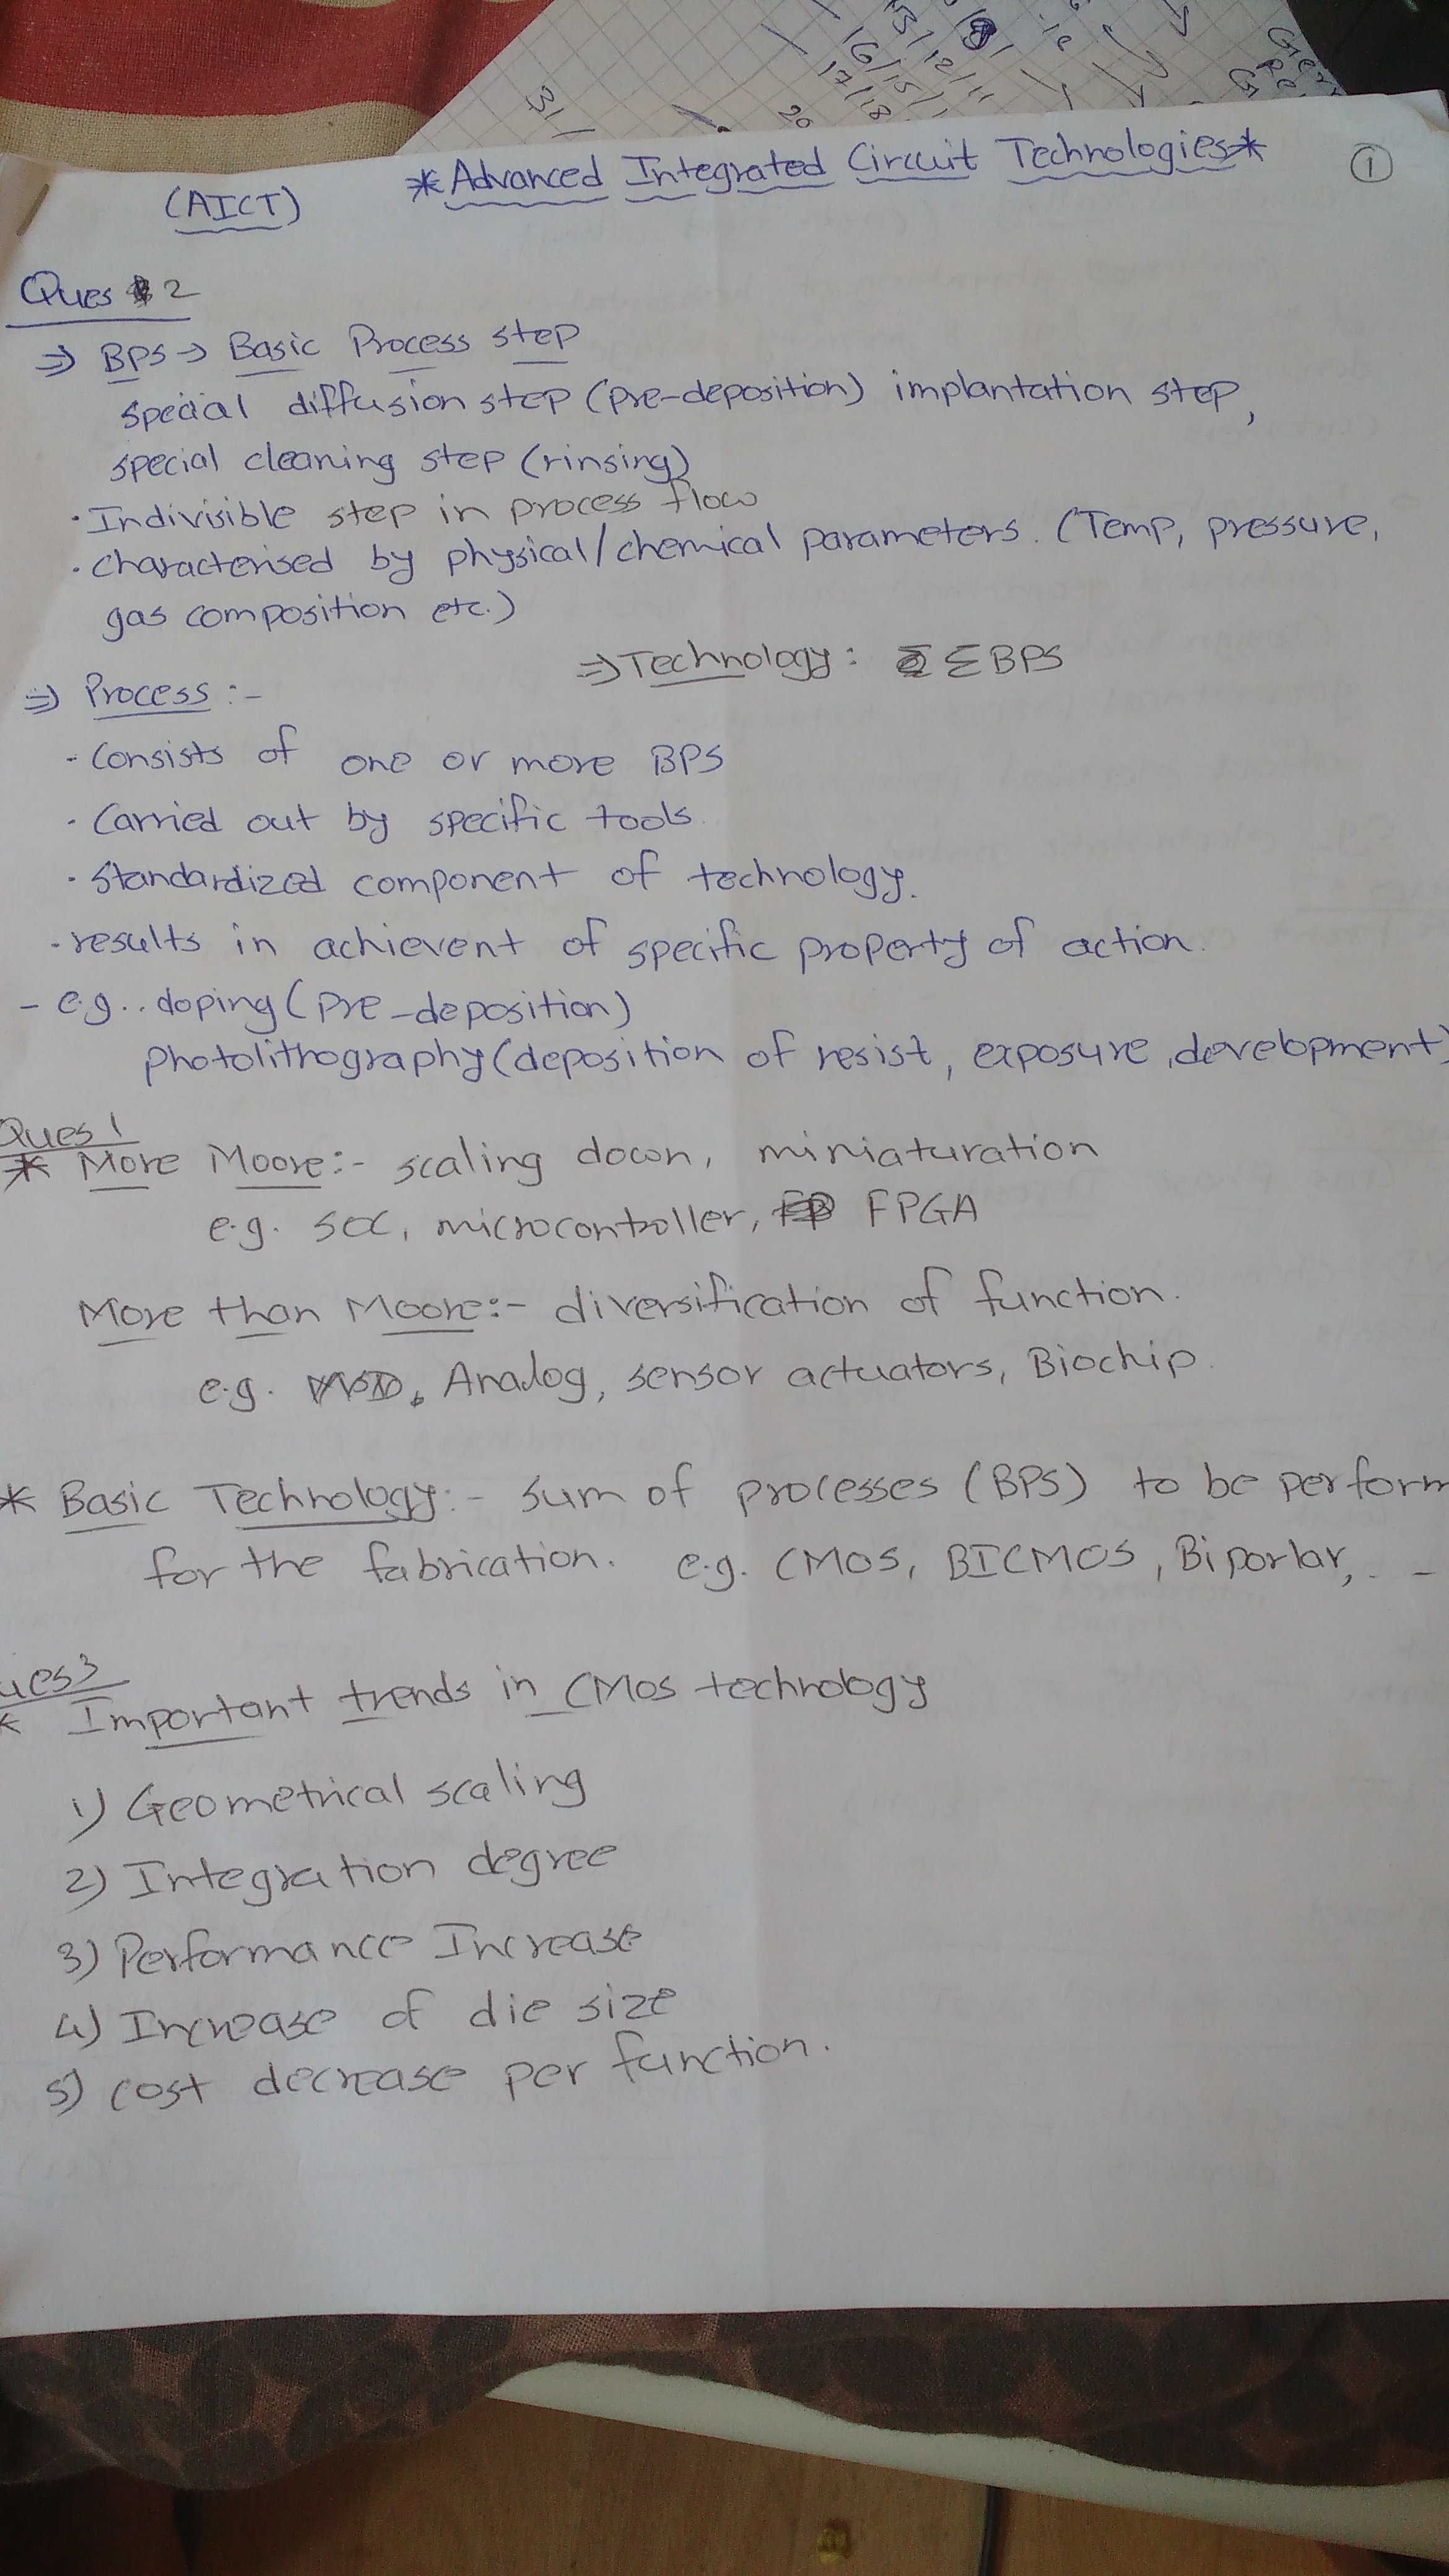 31/
16/15/
17/18
20
13/12/11
* Advanced Integrated Circuit Technologies *
1
(AICT)
Ques 2
⇒ BPS → Basic Process step
special diffusion step (pre-deposition) implantation step,
special cleaning step (rinsing)
· Indivisible step in process flow
· Characterised by physical/chemical parameters. (Temp, pressure,
gas composition etc.)
⇒ Technology : Σ BPS
⇒ Process :-
· Consists of one or more BPS
· Carried out by specific tools
· Standardized component of technology.
- results in achievent of specific property of action.
- e.g.. doping (pre-deposition)
photolithography (deposition of resist, exposure, development)
Ques 1
* More Moore:- scaling down, miniaturation
e.g. SOC, microcontroller, FPGA
More than Moore:- diversification of function.
e.g. Analog, sensor actuators, Biochip.
* Basic Technology:- sum of processes (BPS) to be perform
for the fabrication. e.g. CMOS, BICMOS, Biporlar, . -
ues 3
* Important trends in CMOS technology
1) Geometrical scaling
2) Integration degree
3) Performance Increase
4) Increase of die size
5) Cost decrease per function.